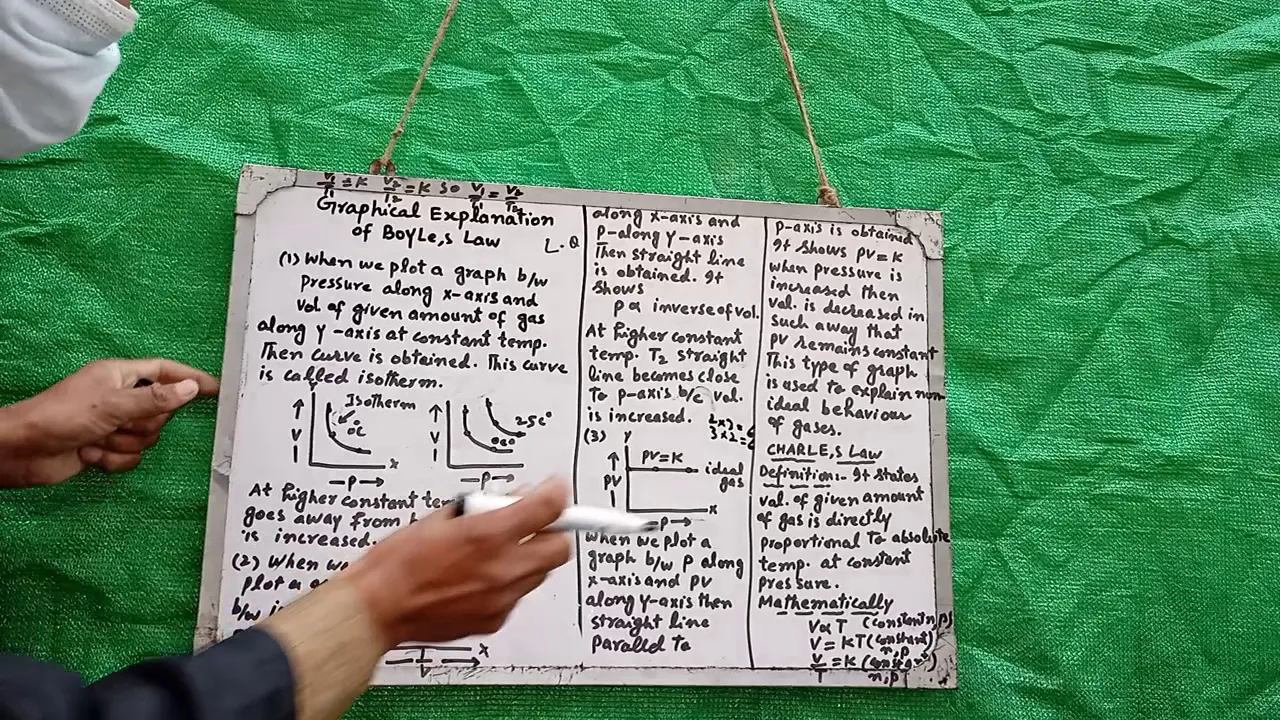 V1/T1 = K V2/T2 = K So V1/T1 = V2/T2
Graphical Explanation
of BoyLe,s Law L.Q
(1) When we plot a graph b/w
Pressure along x-axis and
Vol. of given amount of gas
along Y-axis at constant temp.
Then curve is obtained. This curve
is called isotherm.
Y Isotherm
V 0c° x
P
V 0c° 25c°
P
At higher constant
goes away from
is increased.
(2) When we
plot a
b/w
x
1/V
along x-axis and
P-along Y-axis
Then straight line
is obtained. It
shows
P α inverse of vol.
At higher constant
temp. T2 straight
line becomes close
To P-axis b/c vol.
is increased.
(3) Y
PV PV=K ideal
gas
x
P
When we plot a
graph b/w P along
x-axis and PV
along Y-axis then
straight line
Paralled To
P-axis is obtained
It shows PV=K
when pressure is
increased then
vol. is decreased in
such away that
PV remains constant
This type of graph
is used to explain non-
ideal behaviour
of gases.
CHARLE,S Law
Definition:- It states
val. of given amount
of gas is directly
proportional To absolute
temp. at constant
pressure.
Mathematically
V α T (constant n,p)
V = KT (constant n,p)
V/T = K (constant n,p)